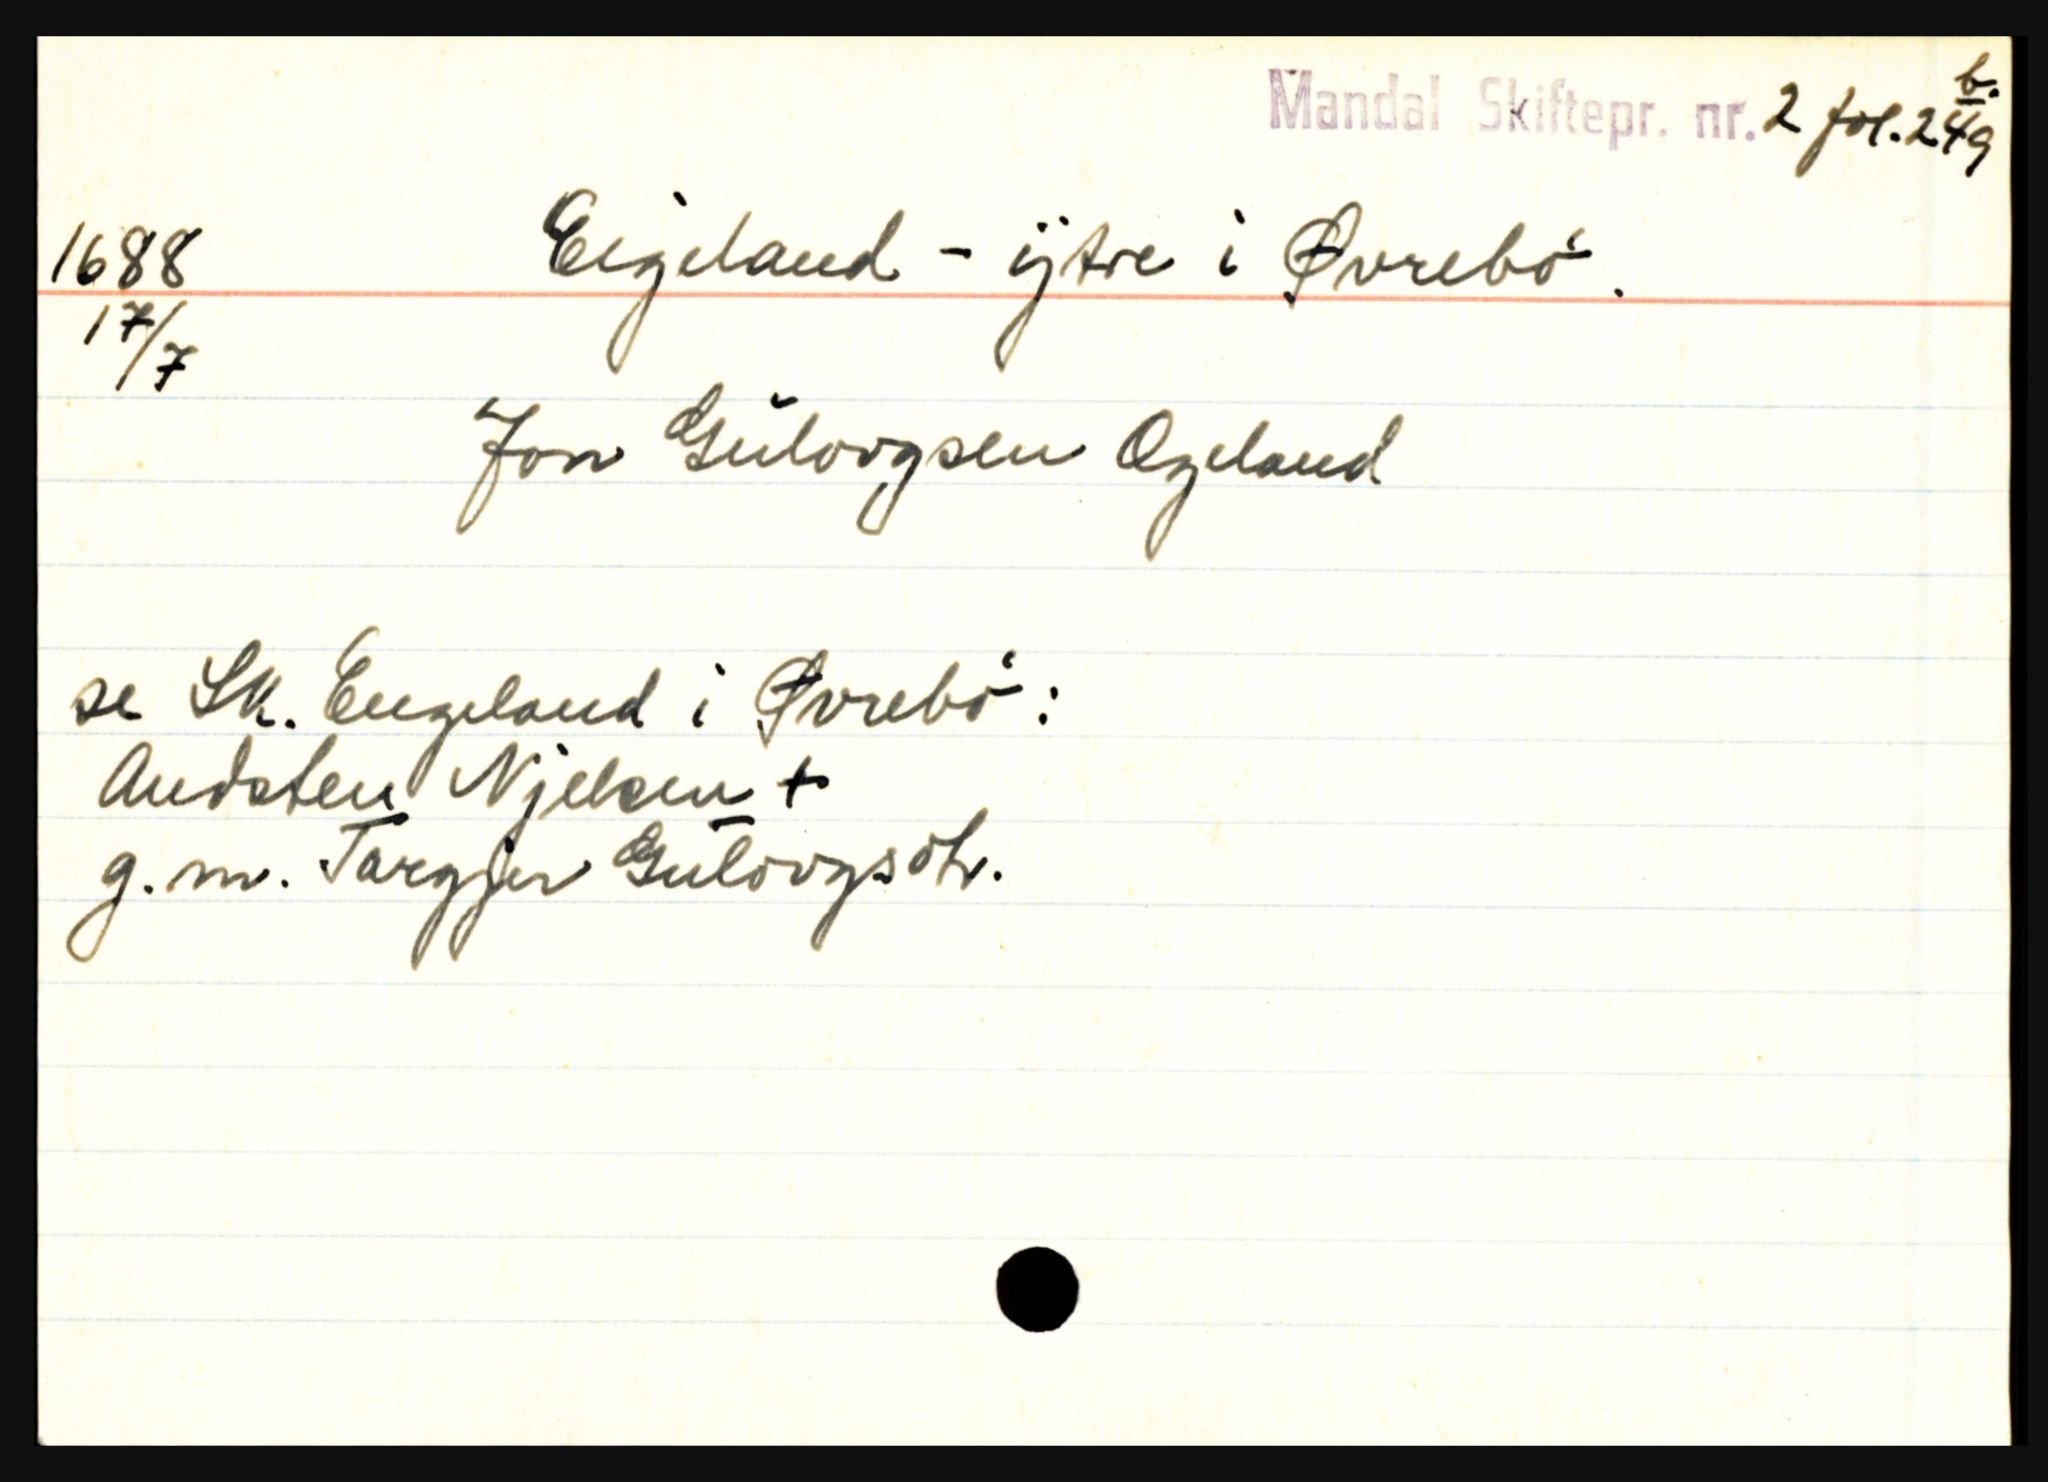 Mandal Skiftepr. nr. 2 fol. 249 b.
1688 Eigeland - ytre i Øvrebö.
17/7
Jon Gulovgsen Ogeland
se Sk. Engeland i Øvrebö:
Audsten Njelsen +
g. m. Targjer Gulovgsdtr.